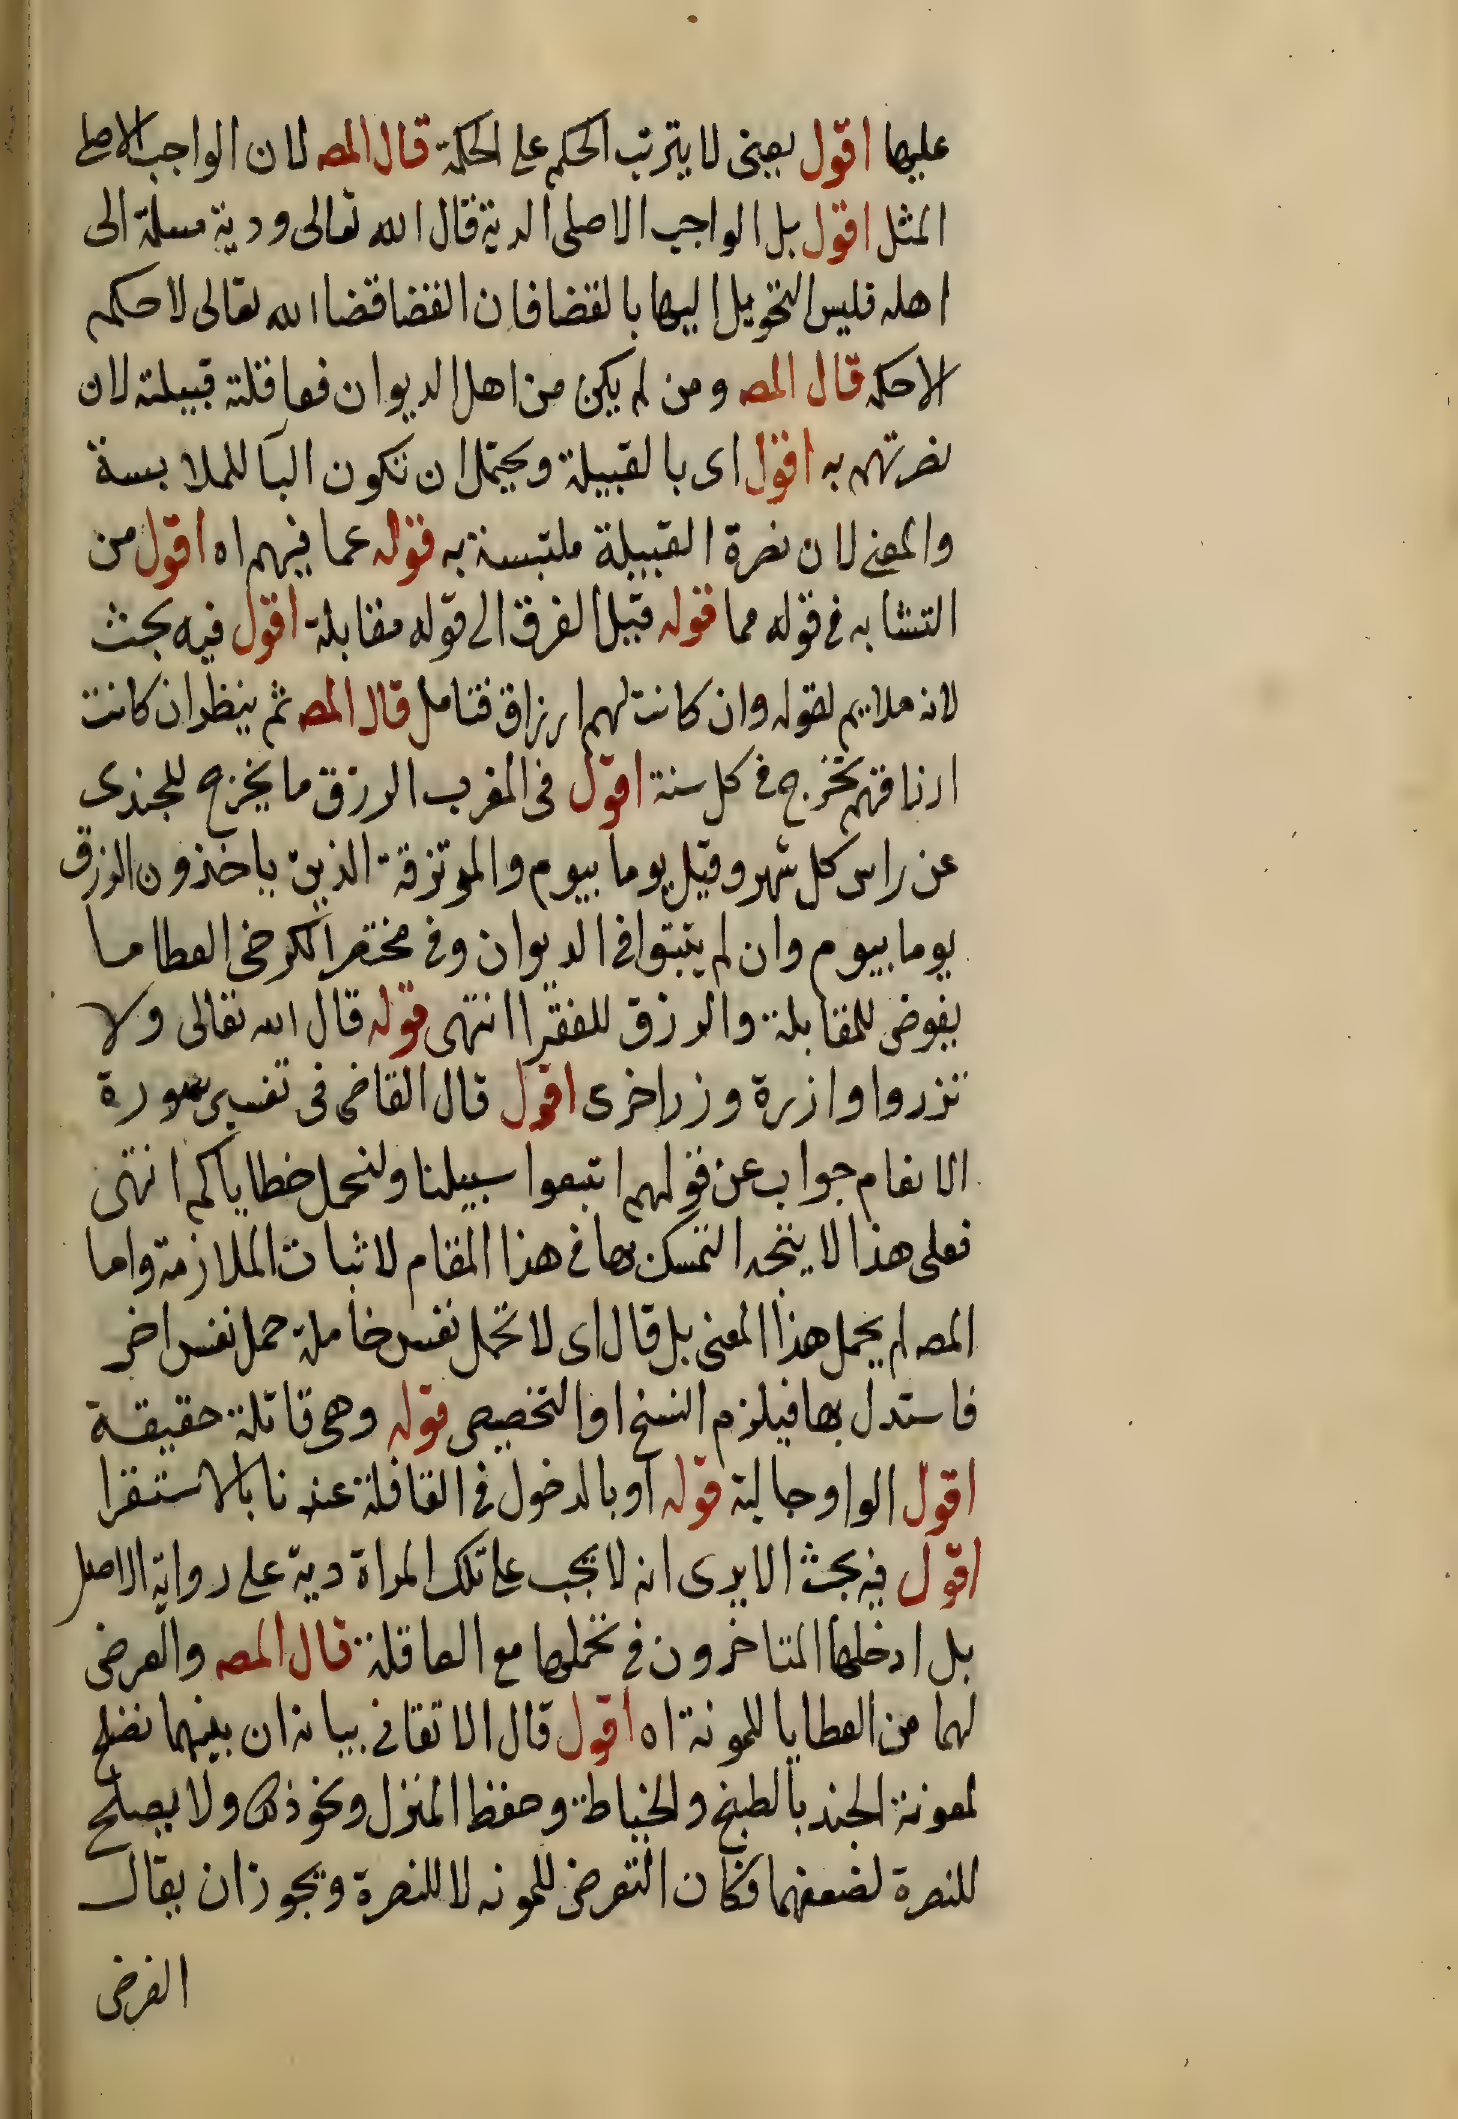 عليها اقول يعنى لا يترتب الحكم على الحكمة قال المصه لان الواجب الاصلى
المثل اقول بل الواجب الاصلى الدية قال الله تعالى ودية مسلمة الى
اهله فليس التحويل اليها بالقضا فان القضا قضا الله تعالى لا حكم
الا حكمه قال المصه ومن لم يكن من اهل الديوان فعاقلته قبيلته لان
نصرتهم به اقول اى بالقبيلة ويحتمل ان تكون البا للملابسة
والمعنى لان نصرة القبيلة ملتبسة به قوله عما فيهم اه اقول من
التشابه فى قوله مما قوله قبيل الفرق الى قوله مقابلة اقول فيه بحث
لانه ملايم لقوله وان كانت لهم ارزاق فتامل قال المصه ثم ينظر ان كانت
ارزاقهم تخرج فى كل سنة اقول فى المغرب الرزق ما يخرج للجندى
عن راس كل شهر وقيل يوما بيوم والموتزقة الذين ياخذون الرزق
يوما بيوم وان لم يثبتوا فى الديوان وفى مختصر الكرخى العطا ما
يفوض للمقابلة والرزق للفقرا انتهى قوله قال الله تعالى ولا
تزروا وازرة وزر اخرى اقول قال القاضى فى تفسير سورة
الانعام جواب عن قولهم اتبعوا سبيلنا ولنحمل خطاياكم انتهى
فعلى هذا لا يتجه التمسك بها فى هذا المقام لاثبات الملازمة واما
المصه لم يحمل هذا المعنى بل قال اى لا تحمل نفس حاملة حمل نفس اخر
فاستدل بها فيلزم النسخ او التخصيص قوله وهى قاتلة حقيقة
اقول الواو حالية قوله او بالدخول فى القافلة عندنا بالاستقرا
اقول فيه بحث الا يرى انه لا يجب على تلك المراة دية على رواية الاصل
بل ادخلها المتاخرون فى تحملها مع العاقلة قال المصه والعرض
لهما من العطايا للمونة اه اقول قال الاتقانى بيانه ان بينهما تصلح
لمعونة الجند بالطبخ والخياطة وحفظ المنزل ونحو ذلك ولا يصلح
للنصرة لضعفهما فكان التعرض للمونه لا للنصرة ويجوز ان يقال
الفرض